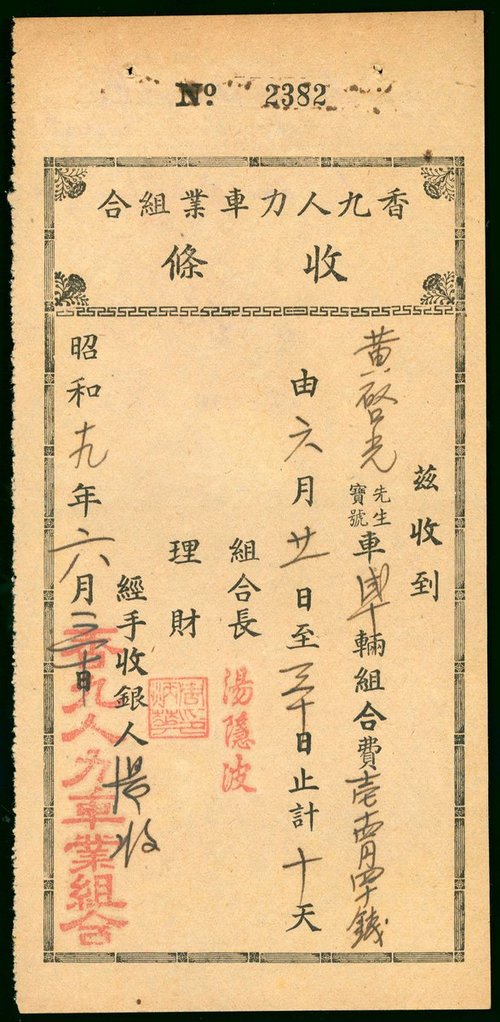 Nº 2382
香九人力車業組合
收條
茲收到
黃啓光先生寶號車 輛組合費壹 四十錢
由六月廿一日至三十日止計十天
組合長 湯隱波
理財
經手收銀人楊收
昭和十九年六月三十日
香九人力車業組合